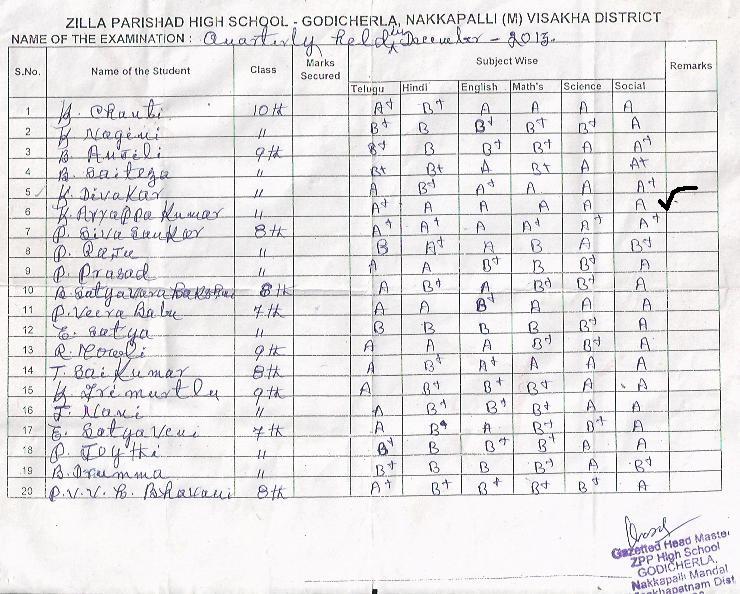 ZILLA PARISHAD HIGH SCHOOL - GODICHERLA, NAKKAPALLI (M) VISAKHA DISTRICT
NAME OF THE EXAMINATION : Quarterly, held in December - 2013.
S.No. Name of the Student Class Marks Secured Subject Wise Remarks
Telugu Hindi English Math's Science Social
1 K. Chanti 10th A+ B+ A A A A
2 K Nagini " B+ B B+ B+ B+ A
3 B. Anjili 9th B+ B B+ B+ A A+
4 B. Saiteja " B+ B+ A B+ A A+
5 K. Divakar " A B+ A+ A A A+
6 K. Ayyappa Kumar " A+ A A A A A
7 P. Siva Sankar 8th A+ A+ A A+ A+ A+
8 P. Raju " B A+ A B A B+
9 P. Prasad " A A B+ B B+ A
10 B. Satyavara 8th A B+ A B+ B+ A
11 P. Veera Babu 7th A A B+ A A A
12 E. Satya " B B B B B+ A
13 R. Mowli 9th A A A B+ B+ A
14 T. Sai Kumar 8th A B+ A+ A A A
15 K. Trimurtlu 9th A B+ B+ B+ A A
16 J. Mani " A B+ B+ B+ A A
17 E. Satyaveni 7th A B+ A B+ B+ A
18 P. Joythi " B+ B B+ B+ A A
19 B. " B+ B B B+ A B+
20 P.V.V.L. Bhavani 8th A+ B+ B+ B+ B+ A
Gazetted Head Master
ZPP High School
GODICHERLA,
Nakkapalli Mandal
Dist